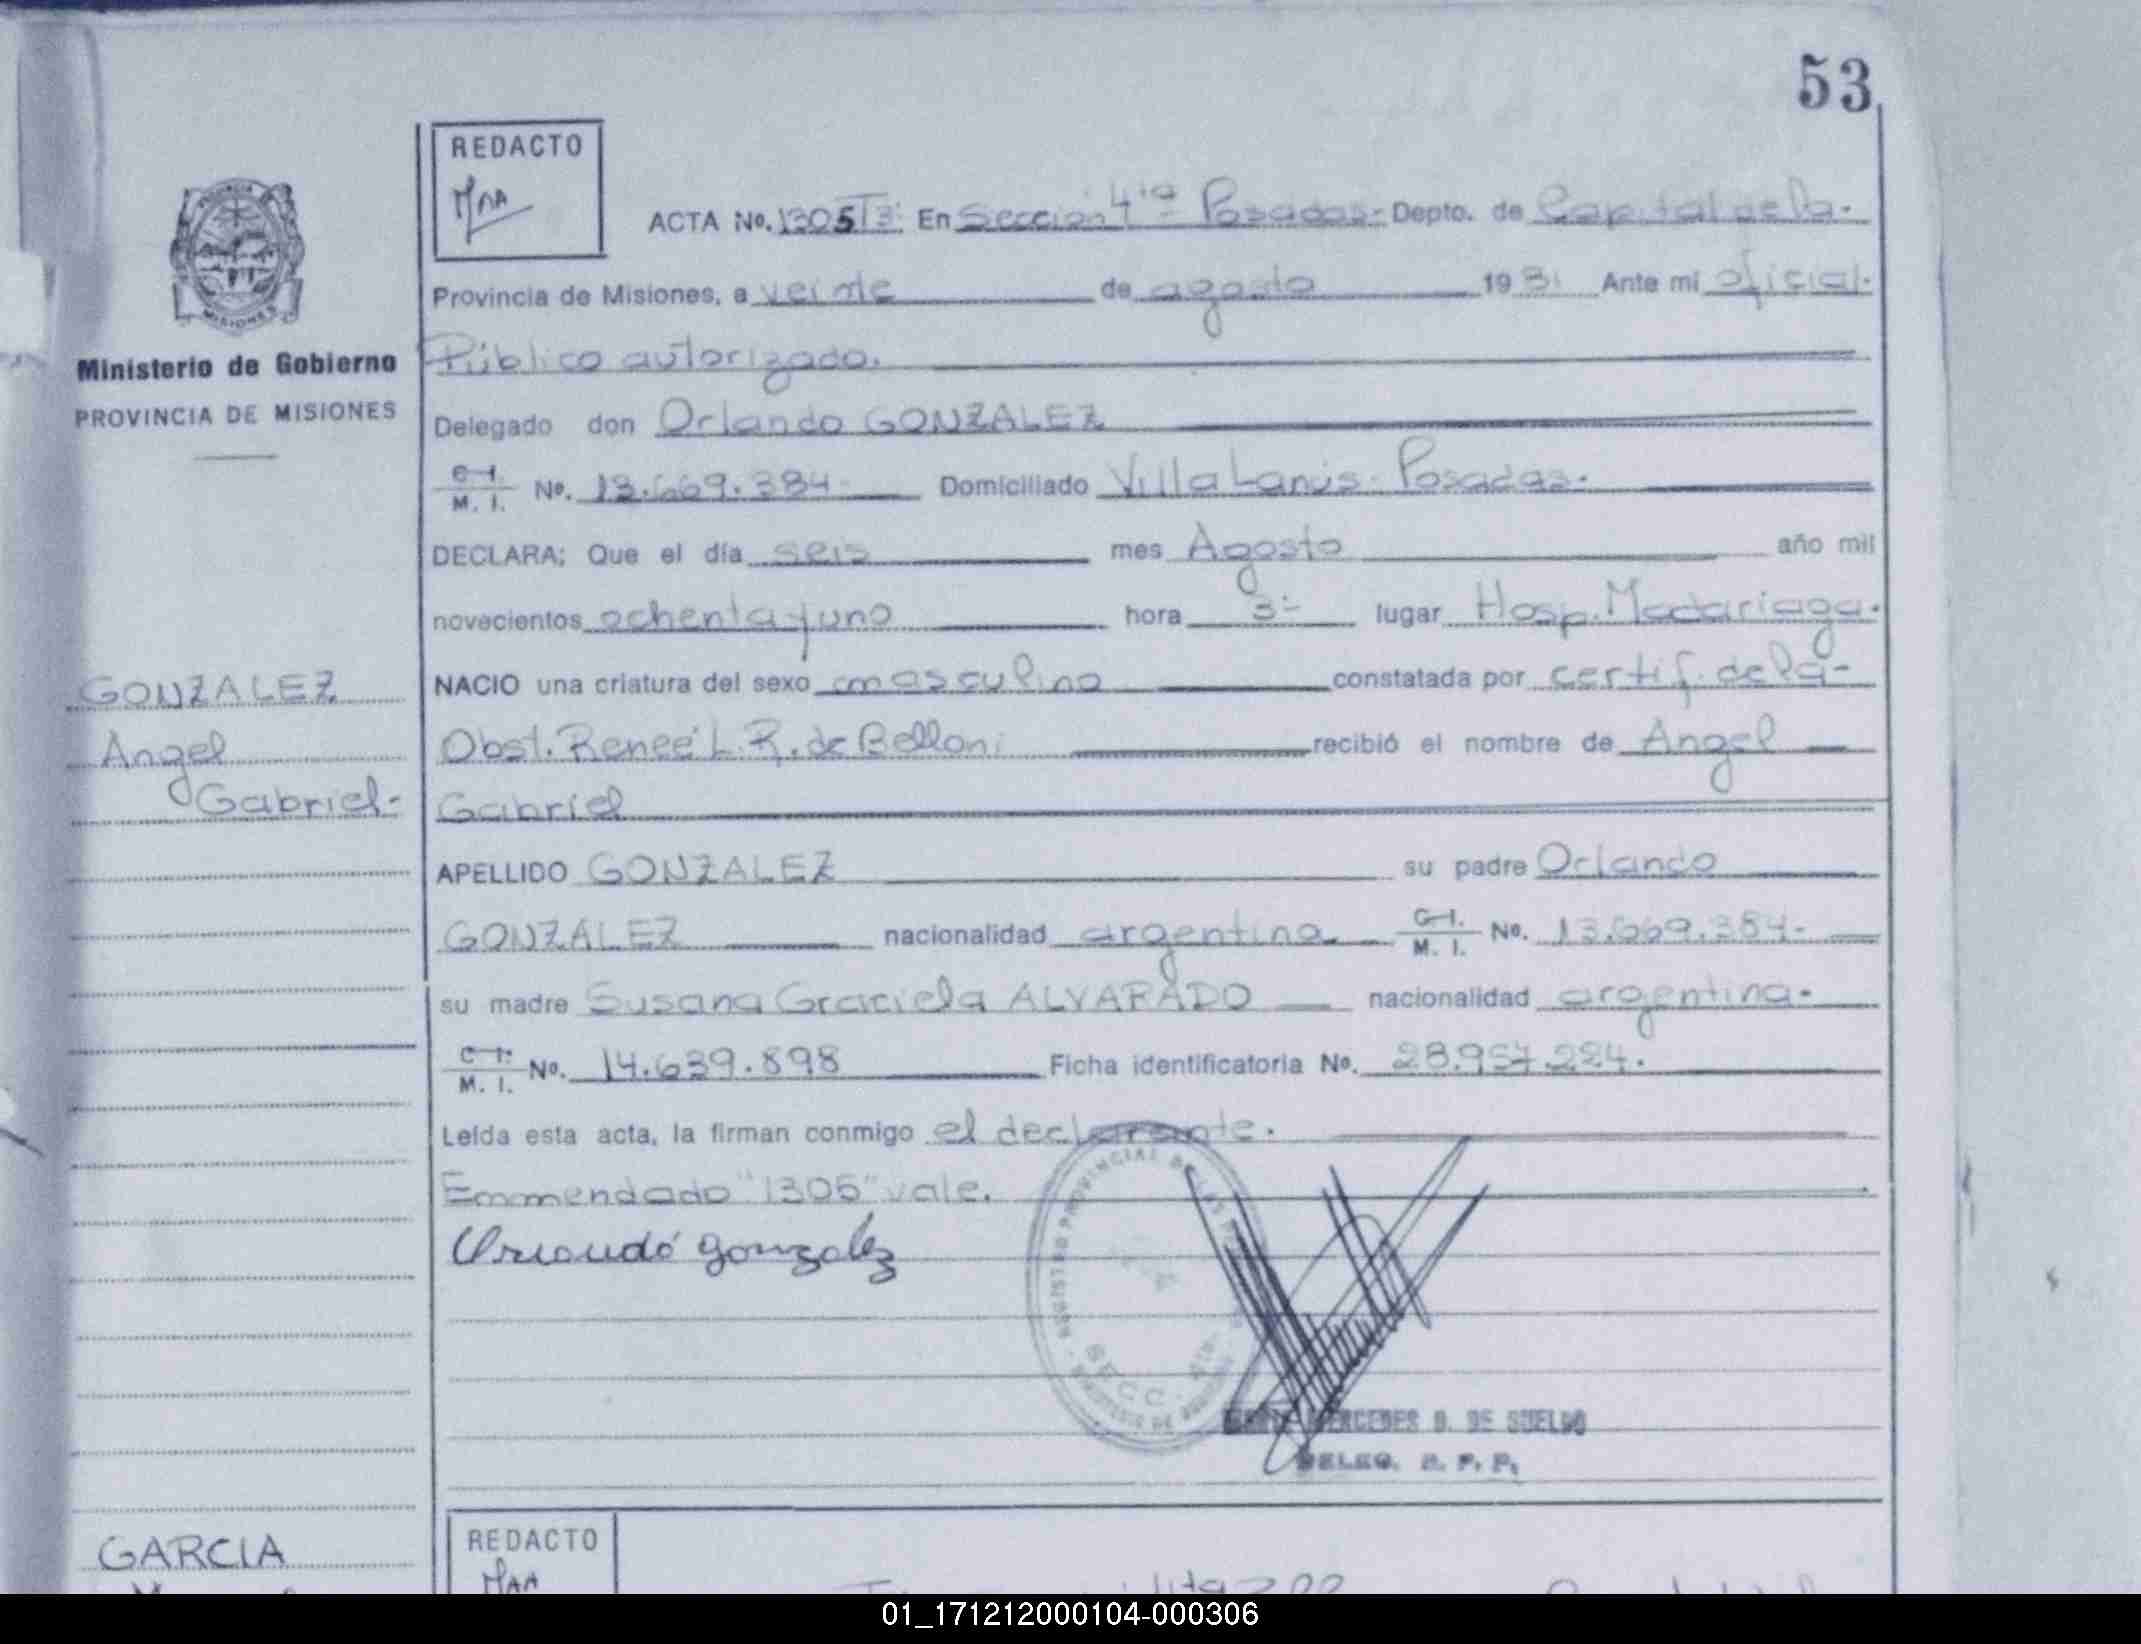 53
REDACTO
ACTA No. 1305 T 3: En Sección 4ta Posadas- Depto. de Capital de la-
Provincia de Misiones, a veinte de agosto 1981 Ante mi oficial
Público autorizado.
Ministerio de Gobierno
PROVINCIA DE MISIONES
Delegado don Orlando GONZALEZ
C-I. M. I. No. 13.669.384- Domiciliado Villa Lanús- Posadas.
DECLARA; Que el día seis mes Agosto año mil
novecientos ochenta y uno hora 3- lugar Hosp. Madariaga.
GONZALEZ
Angel
Gabriel-
NACIO una criatura del sexo masculino constatada por certif. de la-
Obst. Reneé L. R. de Belloni recibió el nombre de Angel
Gabriel
APELLIDO GONZALEZ su padre Orlando
GONZALEZ nacionalidad argentina. C-I. M. I. No. 13.669.384-
su madre Susana Graciela ALVARADO nacionalidad argentina.
C-I. M. I. No. 14.639.898 Ficha identificatoria No. 28.957.224.
Leída esta acta, la firman conmigo el declarante.
Emmendado "1305" vale.
Orlando gonzalez
REGISTRO PROVINCIAL DE LAS
SECC. 4ta.
MERCEDES D. DE SUELDO
DELEG. R. P. P.
GARCIA
REDACTO
01_171212000104-000306